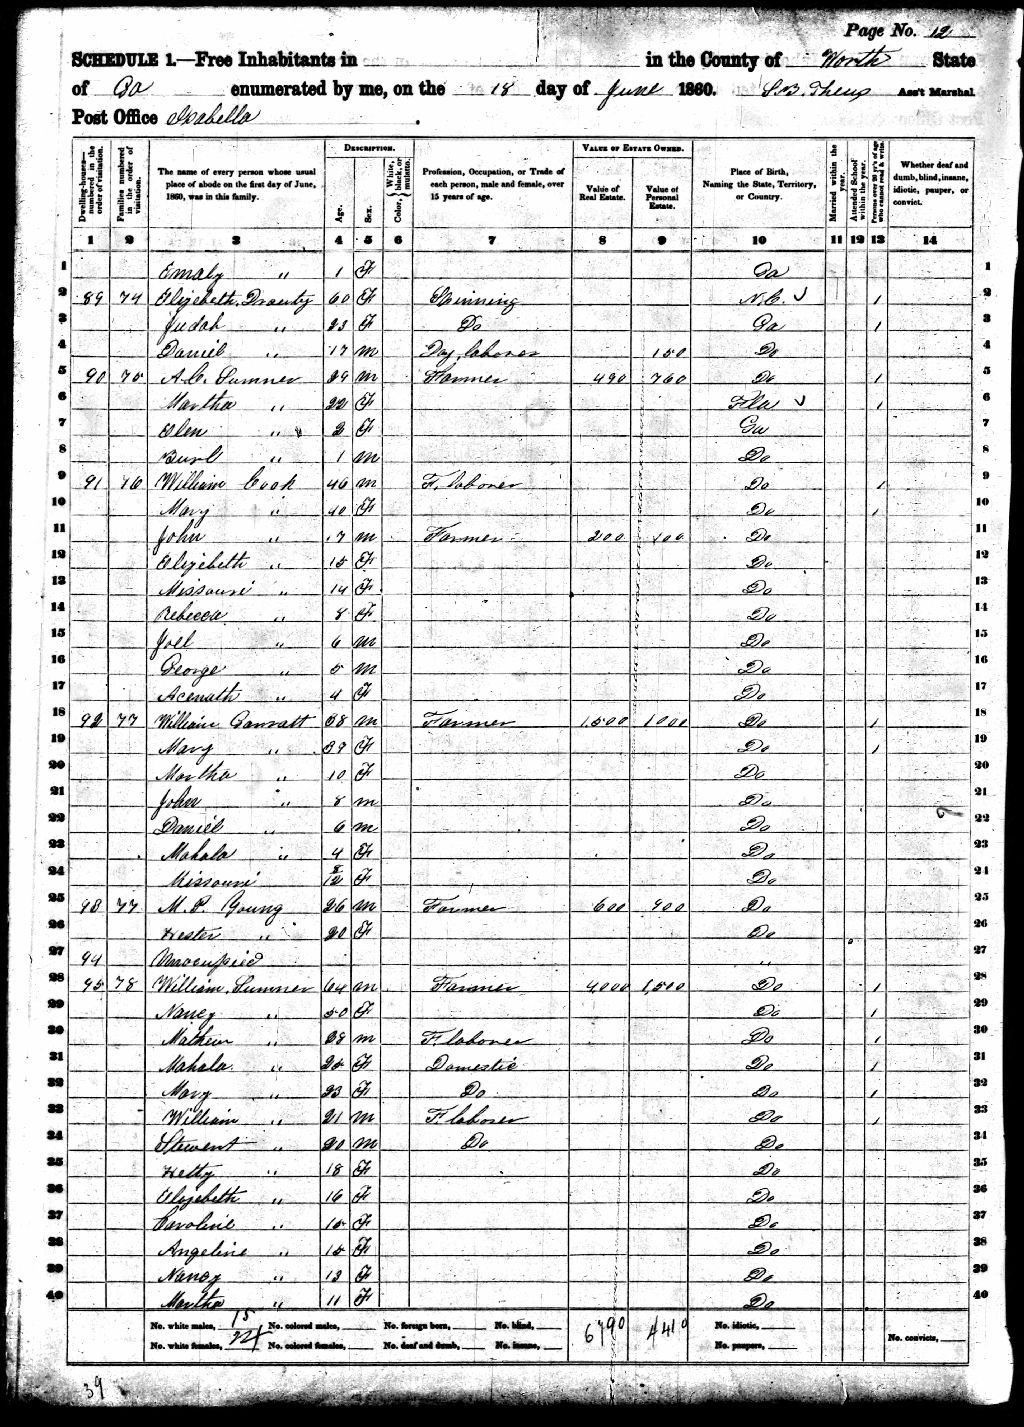 Page No. 12
SCHEDULE 1.—Free Inhabitants in in the County of Worth State
of Ga enumerated by me, on the 18 day of June 1860. Ass't Marshal
Post Office Isabella
Dwelling-houses—numbered in the order of visitation. Families numbered in the order of visitation. The name of every person whose usual place of abode on the first day of June, 1860, was in this family. DESCRIPTION. Age. Sex. Color, {White, black, or mulatto. Profession, Occupation, or Trade of each person, male and female, over 15 years of age. VALUE OF ESTATE OWNED. Value of Real Estate. Value of Personal Estate. Place of Birth, Naming the State, Territory, or Country. Married within the year. Attended School within the year. Persons over 20 y'rs of age who cannot read & write. Whether deaf and dumb, blind, insane, idiotic, pauper, or convict.
1 2 3 4 5 6 7 8 9 10 11 12 13 14
1 Emaly " 1 F Ga 1
2 89 74 Elizebeth 60 F Spinning N.C. ✓ 1 2
3 Judah " 23 F Do Ga 1 3
4 Daniel " 17 m Day laborer 150 Do 4
5 90 75 A.C. Sumner 29 m Farmer 490 760 Do 1 5
6 Martha " 22 F Fla ✓ 1 6
7 Elen " 2 F Ga 7
8 Burl " 1 m Do 8
9 91 76 William Cook 46 m F. laborer Do 1 9
10 Mary " 40 F Do 1 10
11 John " 17 m Farmer 200 100 Do 11
12 Elizebeth " 15 F Do 12
13 Missouri " 14 F Do 13
14 Rebecca " 8 F Do 14
15 Joel " 6 m Do 15
16 George " 5 m Do 16
17 Acenath " 4 F Do 17
18 92 77 William 38 m Farmer 1,500 1000 Do 1 18
19 Mary " 39 F Do 1 19
20 Martha " 10 F Do 20
21 John " 8 m Do 21
22 Daniel " 6 m Do 22
23 Mahala " 4 F Do 23
24 Missouri " 8/12 F Do 24
25 93 77 M. P. Young 26 m Farmer 600 900 Do 25
26 Hester " 20 F Do 26
27 94 Unocupied " 27
28 95 78 William Sumner 64 m Farmer 4,000 1,500 Do 1 28
29 Nancy " 50 F Do 1 29
30 Mathew " 28 m F laborer Do 1 30
31 Mahala " 25 F Domestic Do 1 31
32 Mary " 23 F Do Do 1 32
33 William " 21 m F laborer Do 1 33
34 Stewart " 20 m Do Do 34
35 Hetty " 18 F Do 35
36 Elizebeth " 16 F Do 36
37 Caroline " 15 F Do 37
38 Angeline " 15 F Do 38
39 Nancy " 13 F Do 39
40 Martha " 11 F Do 40
No. white males, 15 No. colored males, No. foreign born, No. blind, 6790 4410 No. idiotic, No. convicts,
No. white females, 24 No. colored females, No. deaf and dumb, No. insane, No. paupers,
39